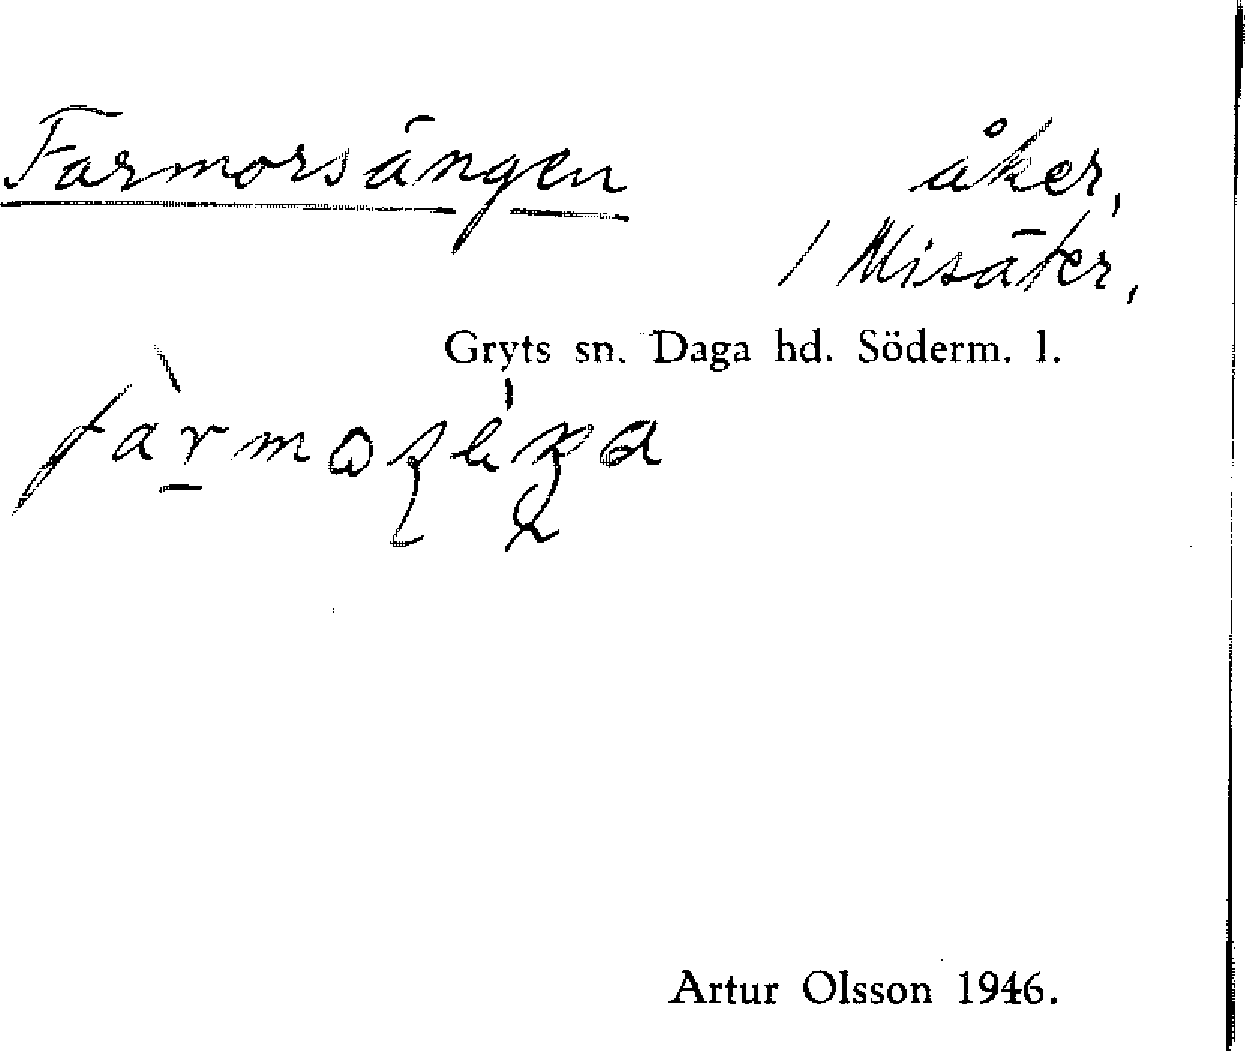 Farmorsängen åker,
/ Misäter,
Gryts sn. Daga hd. Söderm. l.
Artur Olsson 1946.